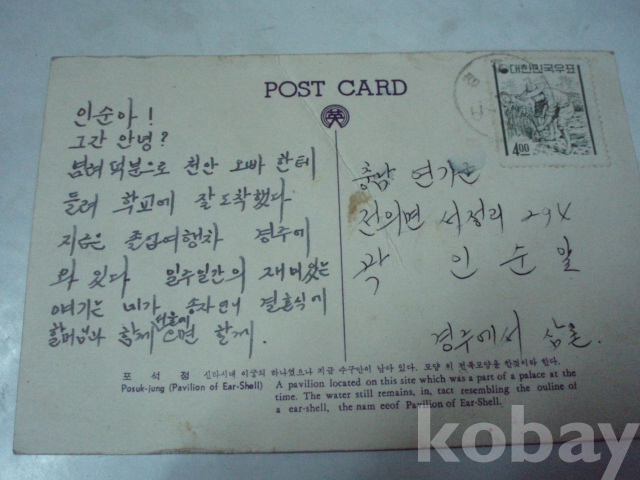 POST CARD
英
대한민국우표
4.00
인순아!
그간 안녕?
염려 덕분으로 천안 오빠 한테
들려 학교에 잘 도착했다
지금은 졸업여행차 경주에
와 있다 일주일간의 재미있는
얘기는 네가 송자언니 결혼식에
할머님과 함께 서울에 오면 할께.
충남 연기군
전의면 서정리 294
곽 인 순 앞
경주에서
포 석 정 신라시대 이궁의 하나였으나 지금 수구만이 남아 있다. 모양 히 전복모양을 한것이라 한다.
Posuk-jung (Pavilion of Ear-Shell)
A pavilion located on this site which was a part of a palace at the
time. The water still remains, in, tact resembling the ouline of
a ear-shell, the nam eeof Pavilion of Ear-Shell.
kobay